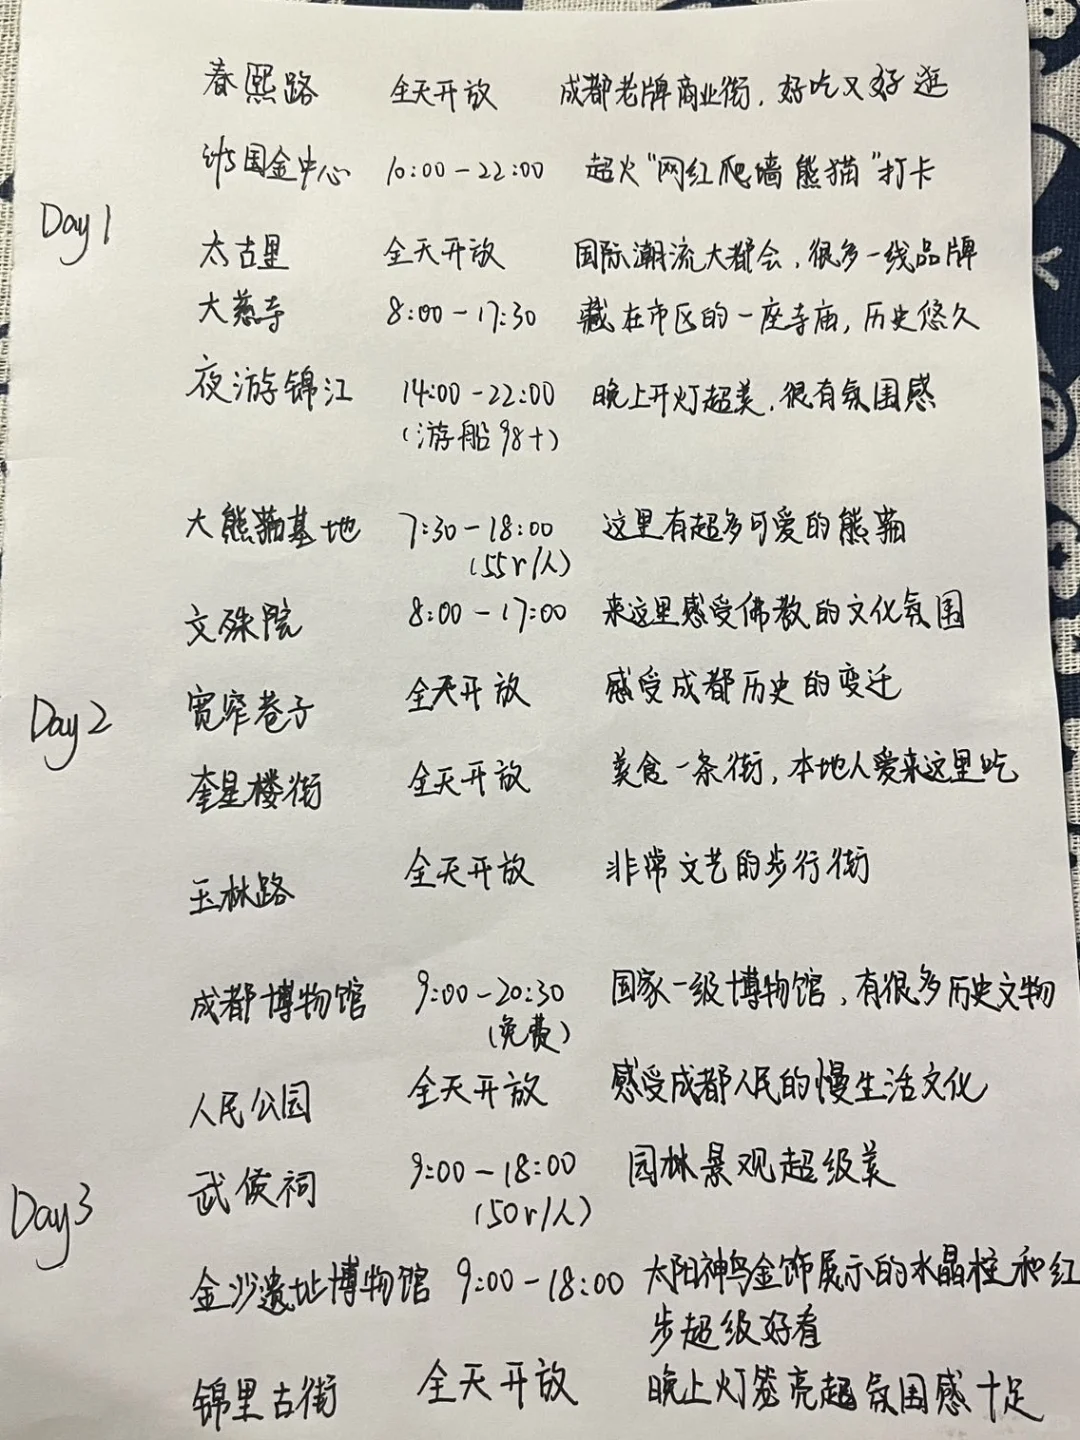 春熙路 全天开放 成都老牌商业街，好吃又好逛
ifs国金中心 10:00-22:00 超火"网红爬墙熊猫"打卡
Day1
太古里 全天开放 国际潮流大都会，很多一线品牌
大慈寺 8:00-17:30 藏在市区的一座寺庙，历史悠久
夜游锦江 14:00-22:00 晚上开灯超美，很有氛围感
(游船98+)
大熊猫基地 7:30-18:00 这里有超多可爱的熊猫
(55r/人)
文殊院 8:00-17:00 来这里感受佛教的文化氛围
Day2
宽窄巷子 全天开放 感受成都历史的变迁
奎星楼街 全天开放 美食一条街，本地人爱来这里吃
玉林路 全天开放 非常文艺的步行街
成都博物馆 9:00-20:30 国家一级博物馆，有很多历史文物
(免费)
人民公园 全天开放 感受成都人民的慢生活文化
武侯祠 9:00-18:00 园林景观超级美
(50r/人)
Day3
金沙遗址博物馆 9:00-18:00 太阳神鸟金饰展示的水晶柱和红
步超级好看
锦里古街 全天开放 晚上灯笼亮超氛围感十足